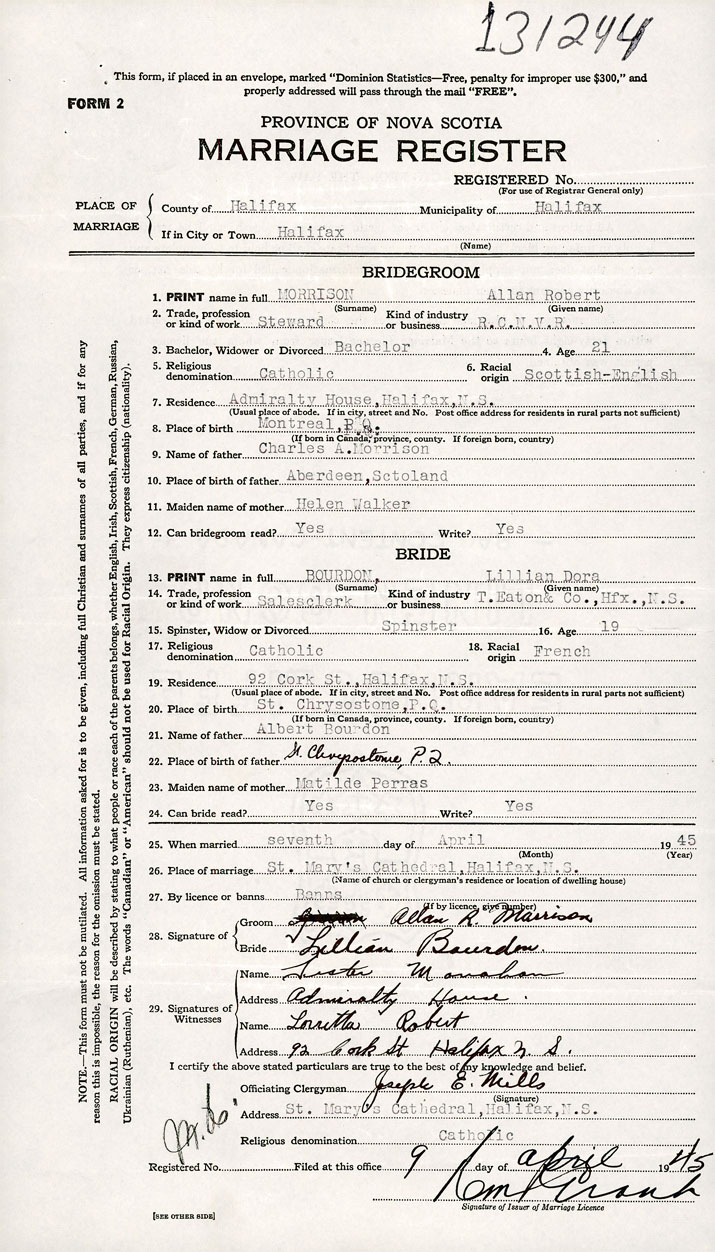 131244
This form, if placed in an envelope, marked "Dominion Statistics—Free, penalty for improper use $300," and
properly addressed will pass through the mail "FREE".
FORM 2
PROVINCE OF NOVA SCOTIA
MARRIAGE REGISTER
REGISTERED No.
(For use of Registrar General only)
PLACE OF MARRIAGE
County of Halifax Municipality of Halifax
If in City or Town Halifax
(Name)
BRIDEGROOM
1. PRINT name in full MORRISON Allan Robert
(Surname) (Given name)
2. Trade, profession or kind of work Steward Kind of industry or business R.C.N.V.R.
3. Bachelor, Widower or Divorced Bachelor 4. Age 21
5. Religious denomination Catholic 6. Racial origin Scottish-English
7. Residence Admiralty House, Halifax, N.S.
(Usual place of abode. If in city, street and No. Post office address for residents in rural parts not sufficient)
8. Place of birth Montreal, P.Q.
(If born in Canada, province, county. If foreign born, country)
9. Name of father Charles A. Morrison
10. Place of birth of father Aberdeen, Sctoland
11. Maiden name of mother Helen Walker
12. Can bridegroom read? Yes Write? Yes
BRIDE
13. PRINT name in full BOURDON, Lillian Dora
(Surname) (Given name)
14. Trade, profession or kind of work Salesclerk Kind of industry or business T. Eaton & Co., Hfx., N.S.
15. Spinster, Widow or Divorced Spinster 16. Age 19
17. Religious denomination Catholic 18. Racial origin French
19. Residence 92 Cork St., Halifax, N.S.
(Usual place of abode. If in city, street and No. Post office address for residents in rural parts not sufficient)
20. Place of birth St. Chrysostome, P.Q.
(If born in Canada, province, county. If foreign born, country)
21. Name of father Albert Bourdon
22. Place of birth of father St. Chrysostome, P.Q.
23. Maiden name of mother Matilde Perras
24. Can bride read? Yes Write? Yes
25. When married seventh day of April 1945
(Month) (Year)
26. Place of marriage St. Mary's Cathedral, Halifax, N.S.
(Name of church or clergyman's residence or location of dwelling house)
27. By licence or banns Banns
(If by licence, give number)
28. Signature of
Groom Allan R. Morrison
Bride Lillian Bourdon.
29. Signatures of Witnesses
Name Lester Monahan
Address Admiralty House.
Name Lorretta Robert
Address 92 Cork St Halifax N.S.
I certify the above stated particulars are true to the best of my knowledge and belief.
Officiating Clergyman Joseph E. Mills
(Signature)
Address St. Mary's Cathedral, Halifax, N.S.
Religious denomination Catholic
Registered No. Filed at this office 9 day of April 1945
Signature of Issuer of Marriage Licence
[SEE OTHER SIDE]
NOTE.—This form must not be mutilated. All information asked for is to be given, including full Christian and surnames of all parties, and if for any
reason this is impossible, the reason for the omission must be stated.
RACIAL ORIGIN will be described by stating to what people or race each of the parents belongs, whether English, Irish, Scottish, French, German, Russian,
Ukrainian (Ruthenian), etc. The words "Canadian" or "American" should not be used for Racial Origin. They express citizenship (nationality).